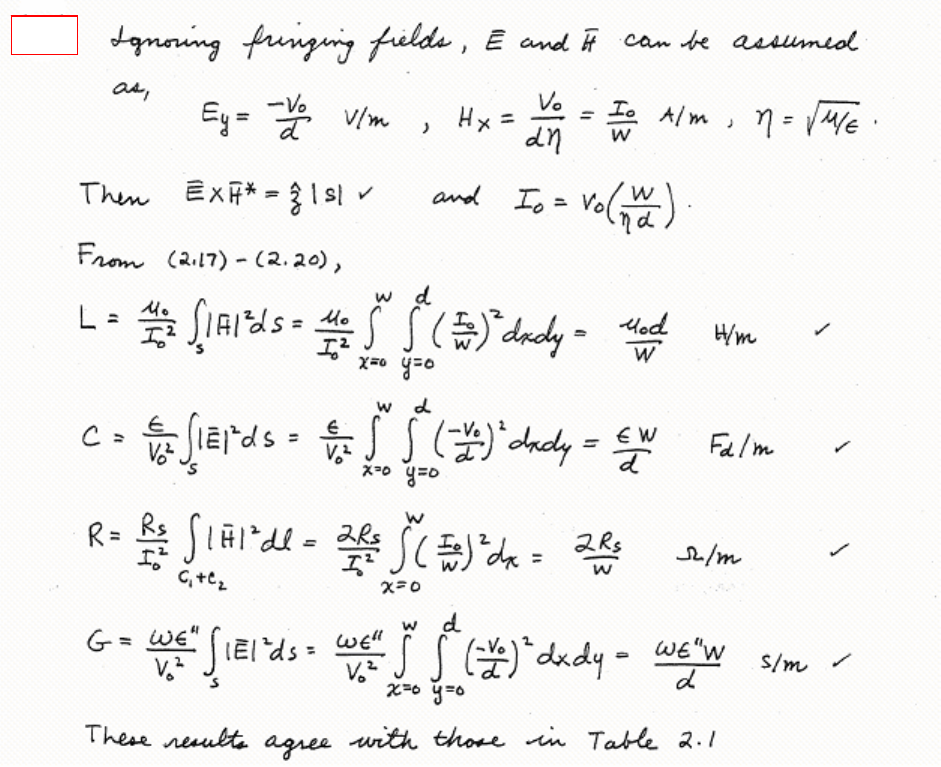 Ignoring fringing fields, Ē and H̄ can be assumed
as,
E_y = -V₀/d V/m , H_x = V₀/(dη) = I₀/W A/m , η = √(μ/ϵ) .
Then Ē×H̄* = ẑ |S| ✓ and I₀ = V₀(W/(ηd)) .
From (2.17) - (2.20),
L = μ₀/I₀² ∫_S |H̄|² ds = μ₀/I₀² ∫_{x=0}^{W} ∫_{y=0}^{d} (I₀/W)² dxdy = μ₀d/W H/m ✓
C = ϵ/V₀² ∫_S |Ē|² ds = ϵ/V₀² ∫_{x=0}^{W} ∫_{y=0}^{d} (-V₀/d)² dxdy = ϵW/d Fd/m ✓
R = Rs/I₀² ∫_{C₁+C₂} |H̄|² dl = 2Rs/I₀² ∫_{x=0}^{W} (I₀/W)² dx = 2Rs/W Ω/m ✓
G = ωϵ"/V₀² ∫_S |Ē|² ds = ωϵ"/V₀² ∫_{x=0}^{W} ∫_{y=0}^{d} (-V₀/d)² dxdy = ωϵ"W/d S/m ✓
These results agree with those in Table 2.1